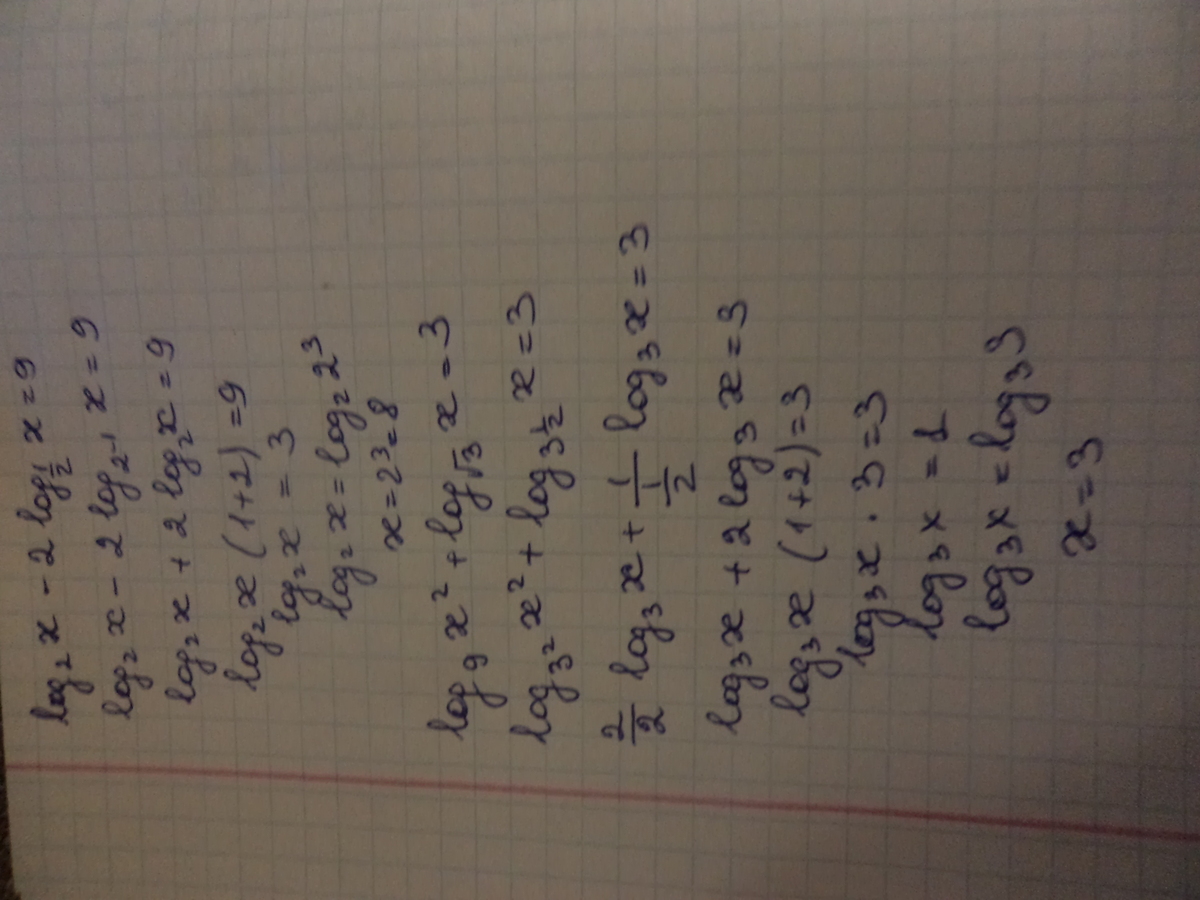 log₂x - 2 log_{1/2} x = 9
log₂x - 2 log_{2⁻¹} x = 9
log₂x + 2 log₂x = 9
log₂x (1+2) = 9
log₂x = 3
log₂x = log₂2³
x = 2³ = 8
log₉x² + log_{√3} x = 3
log_{3²} x² + log_{3^{1/2}} x = 3
2/2 log₃x + 1/(1/2) log₃x = 3
log₃x + 2 log₃x = 3
log₃x (1+2) = 3
log₃x · 3 = 3
log₃x = 1
log₃x = log₃3
x = 3